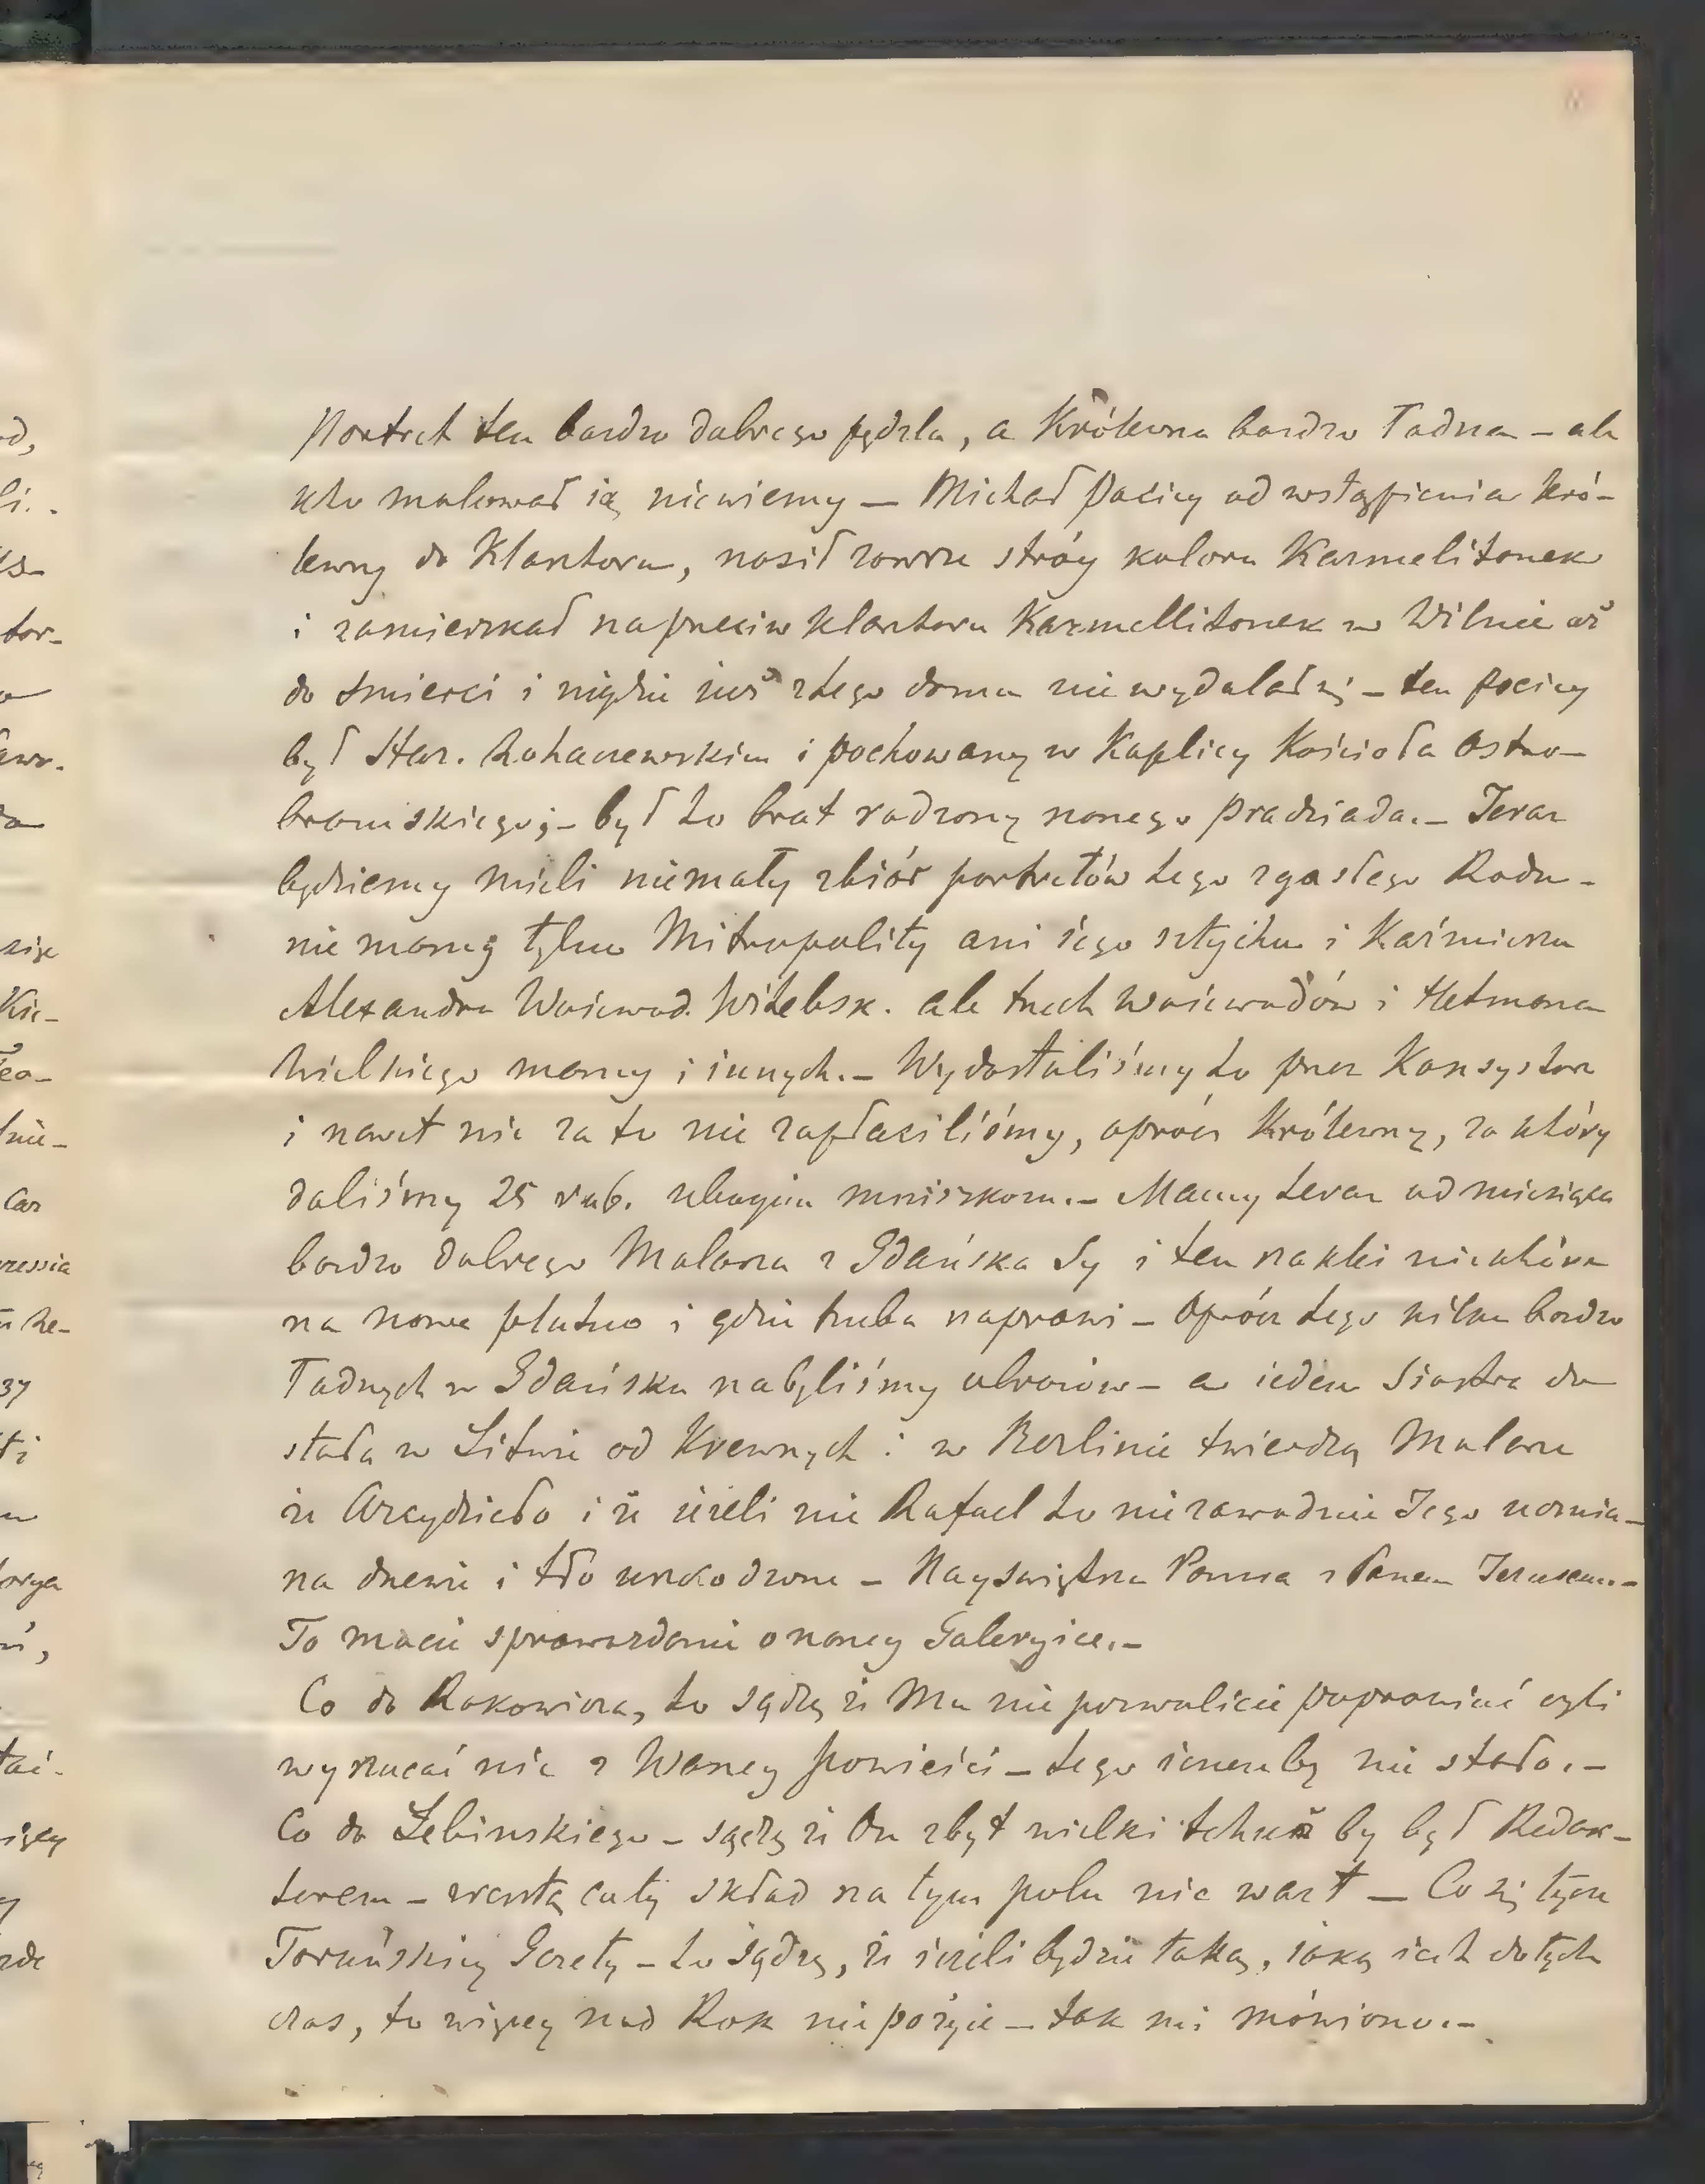 Portret ten bardzo dobrego pędzla, a Królewna bardzo ładna – ale
kto malował ią niewiemy – Michał Paciey od wstąpienia kró-
lewny do Klasztoru, nosił zawsze stróy koloru Karmelitanek
i zamieszkał naprzeciw klasztoru Karmellitanek w Wilnie aż
do śmierci i nigdzie iuż z tego domu nie wydalał się – ten Pociey
był Star. Rohaczewskim i pochowany w Kaplicy Kościoła Ostro-
bramskiego; – był to brat rodzony naszego Pradziada. – Teraz
będziemy mieli niemały zbiór portretów tego zgasłego Rodu –
nie mamy tylko Mitropolity ani iego sztychu i Kaźmierza
Alexandra Woiewod. Witebsk. ale trzech woiewodów i Hetmana
Wielkiego mamy i innych. – Wydostaliśmy to przez Konsystorz
i nawet nic za to nie zapłaciliśmy, oprócz Królewny, za który
daliśmy 25 rub. ubogim mniszkom. – Mamy teraz od miesiąca
bardzo dobrego Malarza z Gdańska Sy i ten naklei niektóre
na nowe płutno i gdzie trzeba naprawi – Oprócz tego kilka bardzo
ładnych w Gdańsku nabyliśmy obrazów – a ieden Siostra do
stała w Litwie od Krewnych i w Berlinie twierdzą Malarze
że Arcydzieło i że ieżeli nie Rafael to niezawodnie Jego ucznia –
na drzewie i tło uszkodzone – Nayświętsza Panna z Panem Jezusem. –
To macie sprawozdanie o naszey Galeryice. –
Co do Rakowicza, to sądzę że Mu nie pozwolicie poprawiać czyli
wyrzucać nic z Waszey powieści – tego ieszczeby nie stało. –
Co do Łebinskiego – sądzę że On zbyt wielki tchurz by był Redak-
torem – zresztą cały skład na tym polu nic wart – Co się tycze
Toruńskiey Gazety – to sądzę, że ieżeli będzie taką, iaką iest dotych
czas, to więcey nad Rok nie pożyie – tak mi mówiono. –